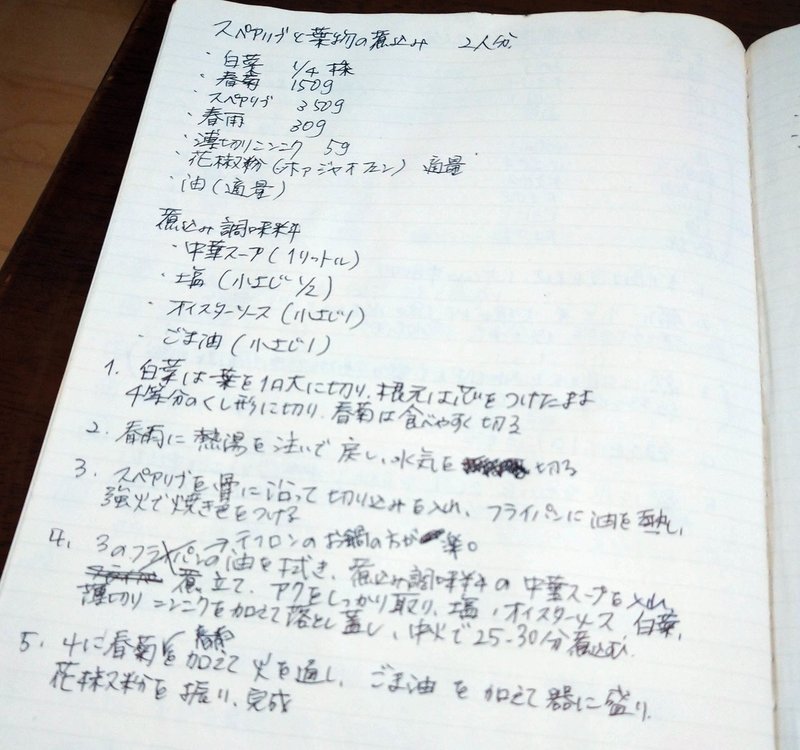 スペアリブと葉物の煮込み 2人分
・白菜 1/4株
・春菊 150g
・スペアリブ 350g
・春雨 30g
・薄切りニンニク 5g
・花椒粉(ホアジャオフェン) 適量
・油(適量)
煮込み調味料
・中華スープ(1リットル)
・塩(小さじ1/2)
・オイスターソース(小さじ1)
・ごま油(小さじ1)
1. 白菜は葉を1口大に切り、根元は芯をつけたまま
4等分のくし形に切り、春菊は食べやすく切る
2. 春雨に熱湯を注いで戻し、水気を切る
3. スペアリブを骨に沿って切り込みを入れ、フライパンに油を熱し、
強火で焼き色をつける
→テフロンのお鍋の方が楽。
4. 3のフライパンの油を拭き、煮込み調味料の中華スープを入れ
煮立て、アクをしっかり取り、塩、オイスターソース 白菜、
薄切りニンニクを加えて落とし蓋し、中火で25-30分煮込む。
春雨
5. 4に春菊を加えて火を通し、ごま油を加えて器に盛り、
花椒粉を振り、完成